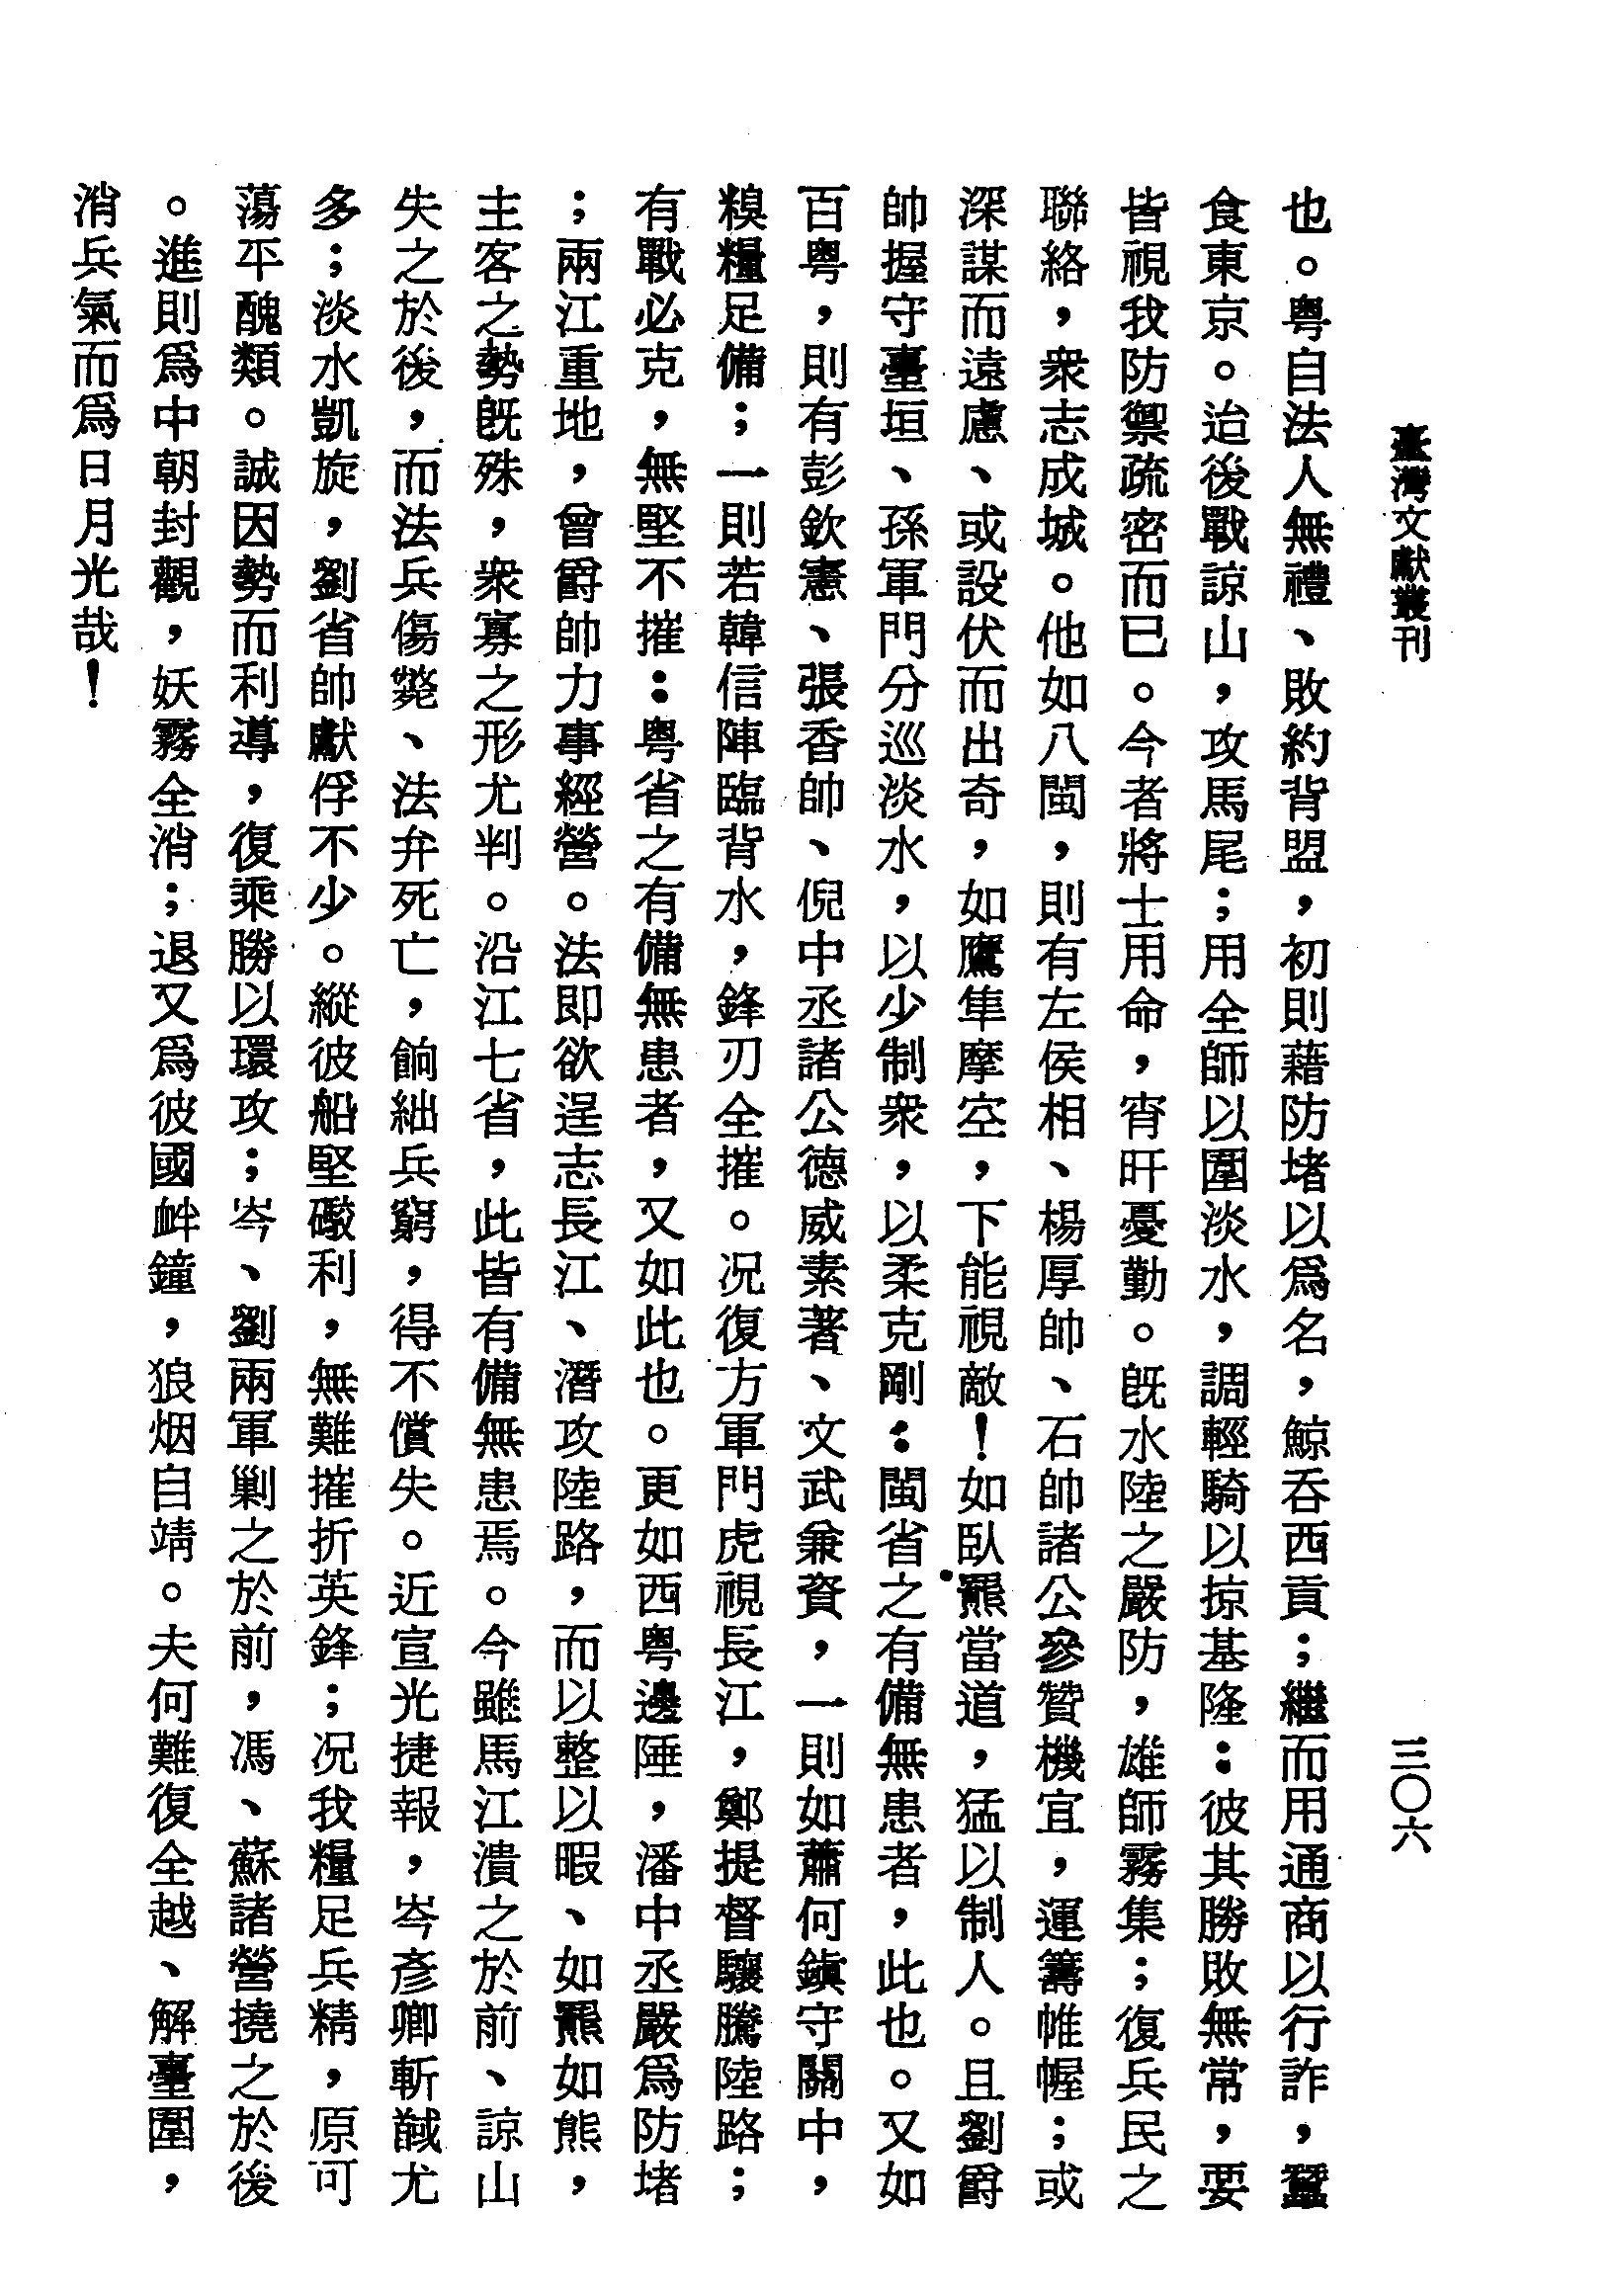 臺灣文獻叢刊
三〇六
也。粵自法人無禮、敗約背盟，初則藉防堵以爲名，鯨吞西貢；繼而用通商以行詐，蠶
食東京。迨後戰諒山，攻馬尾；用全師以圍淡水，調輕騎以掠基隆：彼其勝敗無常，要
皆視我防禦疏密而已。今者將士用命，宵旰憂勤。旣水陸之嚴防，雄師霧集；復兵民之
聯絡，衆志成城。他如八閩，則有左侯相、楊厚帥、石帥諸公參贊機宜，運籌帷幄；或
深謀而遠慮、或設伏而出奇，如鷹隼摩空，下能視敵！如臥羆當道，猛以制人。且劉爵
帥握守臺垣、孫軍門分巡淡水，以少制衆，以柔克剛：閩省之有備無患者，此也。又如
百粵，則有彭欽憲、張香帥、倪中丞諸公德威素著、文武兼資，一則如蕭何鎭守關中，
糗糧足備；一則若韓信陣臨背水，鋒刃全摧。况復方軍門虎視長江，鄭提督驤騰陸路；
有戰必克，無堅不摧：粵省之有備無患者，又如此也。更如西粵邊陲，潘中丞嚴爲防堵
；兩江重地，曾爵帥力事經營。法即欲逞志長江、潛攻陸路，而以整以暇、如羆如熊，
主客之勢旣殊，衆寡之形尤判。沿江七省，此皆有備無患焉。今雖馬江潰之於前、諒山
失之於後，而法兵傷斃、法弁死亡，餉絀兵窮，得不償失。近宣光捷報，岑彥卿斬馘尤
多；淡水凱旋，劉省帥獻俘不少。縱彼船堅礮利，無難摧折英鋒；况我糧足兵精，原可
蕩平醜類。誠因勢而利導，復乘勝以環攻；岑、劉兩軍剿之於前，馮、蘇諸營撓之於後
。進則爲中朝封觀，妖霧全消；退又爲彼國衅鐘，狼烟自靖。夫何難復全越、解臺圍，
消兵氣而爲日月光哉！